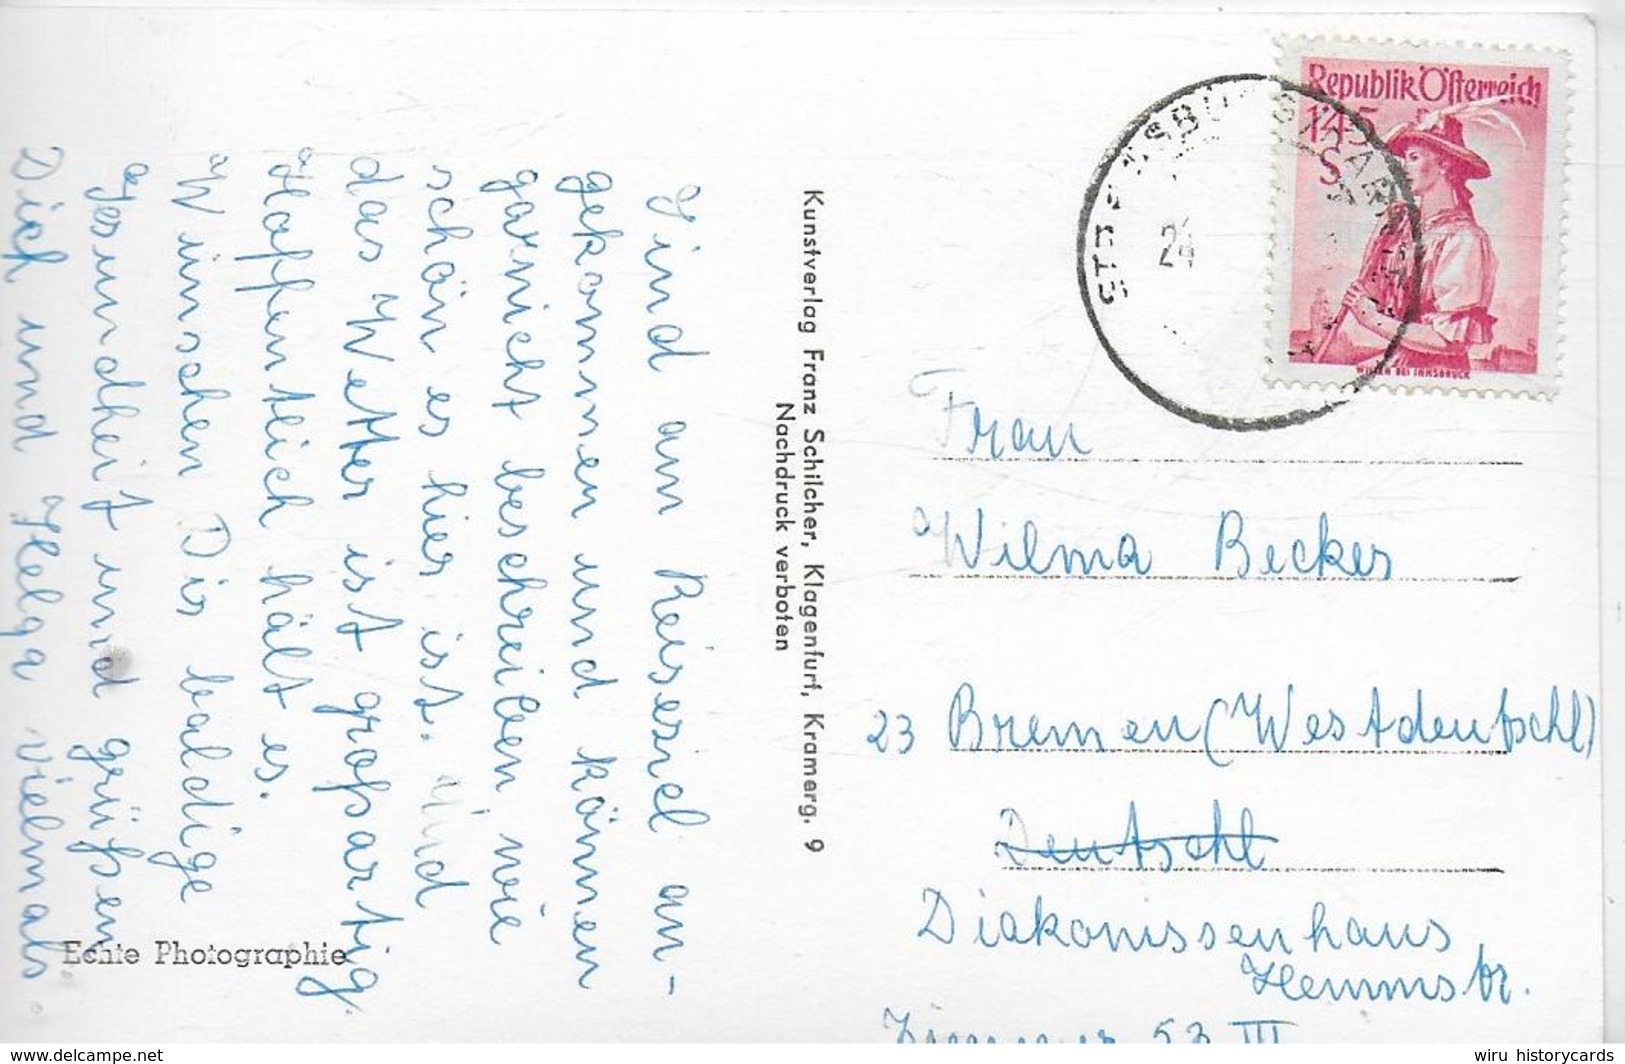 Sind am Reiseziel an-
gekommen und können
garnicht beschreiben wie
schön es hier ist. Und
das Wetter ist großartig.
Hoffentlich hält es.
Wünschen Dir baldige
Gesundheit und grüßen
Dich und Helga vielmals
Echte Photographie
Kunstverlag Franz Schilcher, Klagenfurt, Kramerg. 9
Nachdruck verboten
Republik Österreich
1'45
S
WILTEN BEI INNSBRUCK
24
Frau
Wilma Becker
23 Bremen (Westdeutschl)
Deutschl
Diakonissenhaus
Hemmstr.
Zimmer 53 III
wiru historycards
www.delcampe.net